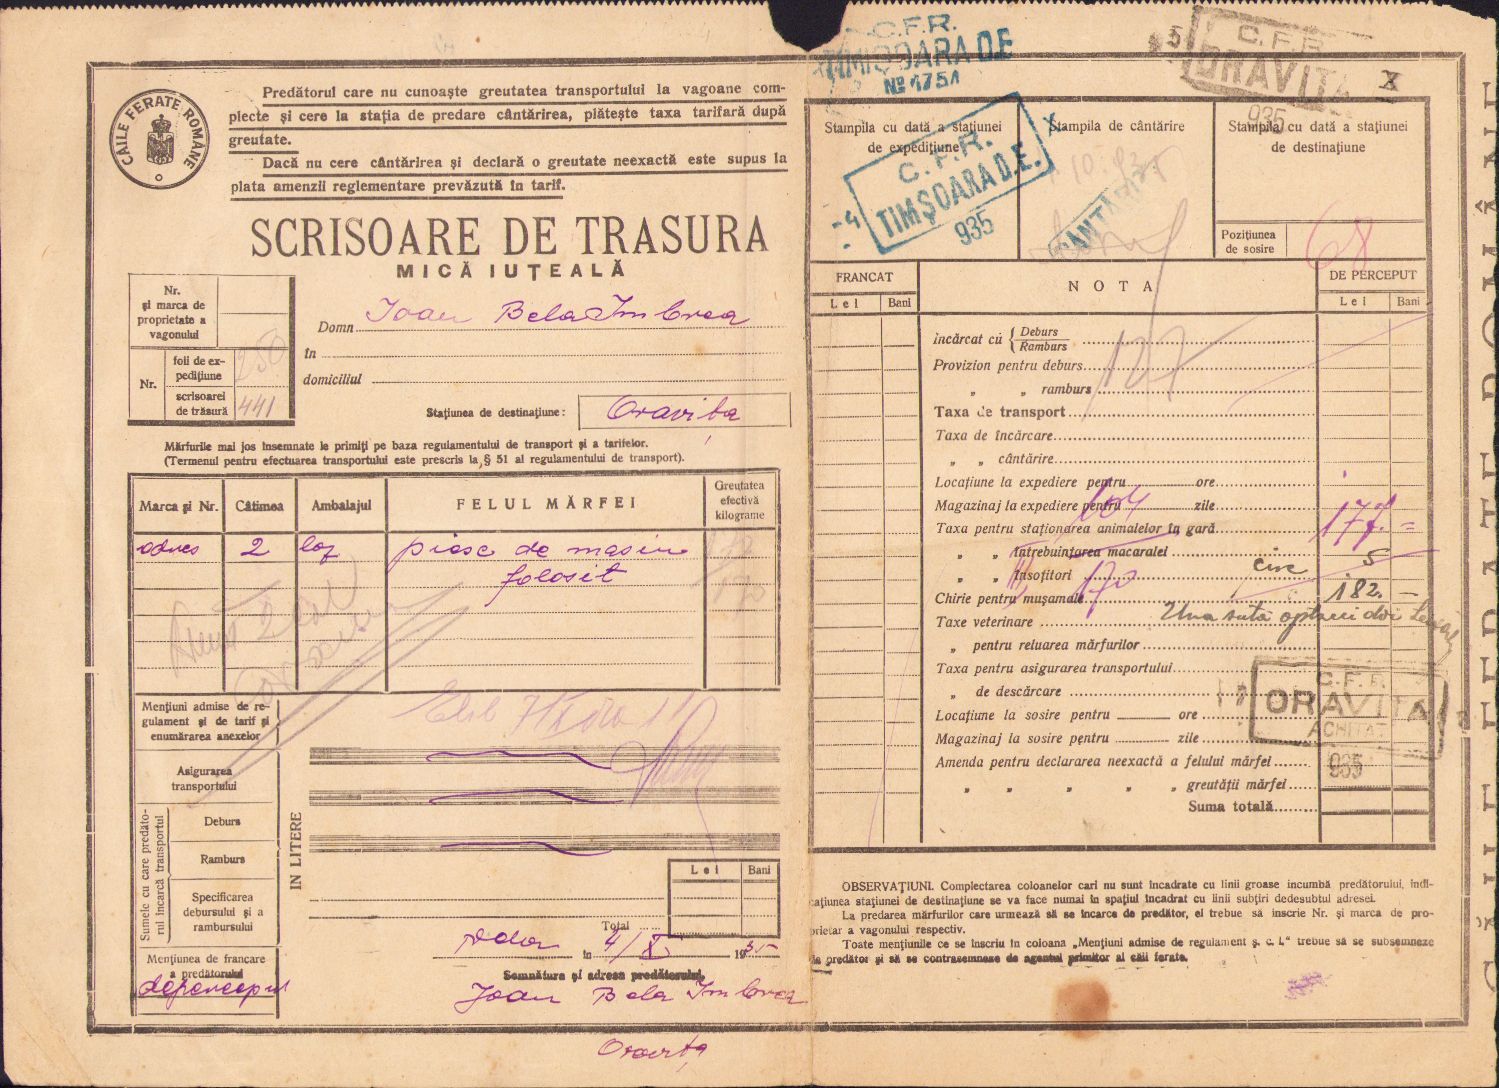 C.F.R.
TIMIȘOARA D.E
№ 1751
C. F. R.
ORAVITA
935
CAILE FERATE ROMÂNE
Predătorul care nu cunoaște greutatea transportului la vagoane com-
plecte și cere la stația de predare cântărirea, plătește taxa tarifară după
greutate.
Dacă nu cere cântărirea și declară o greutate neexactă este supus la
plata amenzii reglementare prevăzută în tarif.
SCRISOARE DE TRASURA
MICĂ IUȚEALĂ
Nr.
și marca de
proprietate a
vagonului
Nr.
foli de ex-
pedițiune
250
scrisoarei
de trăsură
441
Domn Ioan Bela Imbrea
în
domiciliul
Stațiunea de destinațiune: Oravița
Mărfurile mai jos însemnate le primiți pe baza regulamentului de transport și a tarifelor.
(Termenul pentru efectuarea transportului este prescris la § 51 al regulamentului de transport).
Marca și Nr. Câtimea Ambalajul FELUL MĂRFEI Greutatea efectivă kilograme
adres 2 laz piese de masini
folosit
170
Mențiuni admise de re-
gulament și de tarif și
enumărarea anexelor
Asigurarea
transportului
Sumele cu care predăto-
rul încarcă transportul
Deburs
Ramburs
Specificarea
debursului și a
rambursului
Mențiunea de francare
a predătorului
IN LITERE
Lei Bani
Total
4/X 1935
în
Semnătura și adresa predătorului,
Ioan Bela Imbrea
Oravița
Stampila cu dată a stațiunei
de expedițiune
C. F. R.
TIMȘOARA D.E.
-4
935
Stampila de cântărire
Stampila cu dată a stațiunei
de destinațiune
Pozițiunea
de sosire
68
FRANCAT
Lei Bani
NOTA
DE PERCEPUT
Lei Bani
încărcat cu { Deburs
Ramburs
107
Provizion pentru deburs
„ „ ramburs
Taxa de transport
Taxa de încărcare
„ „ cântărire
Locațiune la expediere pentru ore
Magazinaj la expediere pentru zile
604
Taxa pentru staționarea animalelor în gară
177. =
„ „ întrebuințarea macaralei
„ „ însoțitori
170
5
Chirie pentru mușamale
182. –
Taxe veterinare
Una sută optzeci doi Lei
„ pentru reluarea mărfurilor
Taxa pentru asigurarea transportului
„ de descărcare
Locațiune la sosire pentru ore
Magazinaj la sosire pentru zile
Amenda pentru declararea neexactă a felului mărfei
„ „ „ „ „ greutății mărfei
Suma totală
C. F. R.
ORAVITA
ACHITAT
935
OBSERVAȚIUNI. Complectarea coloanelor cari nu sunt încadrate cu linii groase incumbă predătorului, indi-
cațiunea stațiunei de destinațiune se va face numai în spațiul încadrat cu linii subțiri dedesubtul adresei.
La predarea mărfurilor care urmează să se încarce de predător, el trebue să înscrie Nr. și marca de pro-
prietar a vagonului respectiv.
Toate mențiunile ce se înscriu în coloana „Mențiuni admise de regulament ș. c. l.“ trebue să se subsemneze
de predător și să se contrasemneze de agentul primitor al căii ferate.